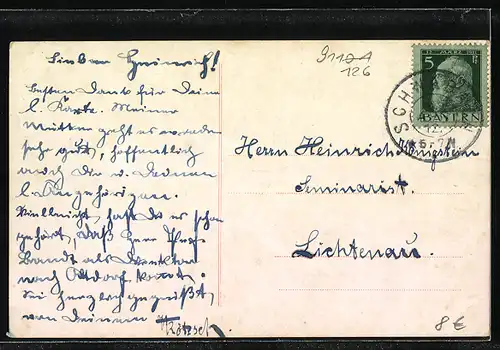 Lieber Heinrich!
Besten Dank für Deine
l. Karte. Meiner
Mutter geht es wieder
sehr gut, hoffentlich
auch Dir u. Deinen
l. Angehörigen.
Vielleicht hast Du es schon
gehört, daß Herr
Brandt als Direktor
nach Altdorf kommt.
Sei herzlich gegrüßt
von Deinem
126
12. MÄRZ 1911
5 Pf
BAYERN
Herrn Heinrich
Seminarist.
Lichtenau.
8 €